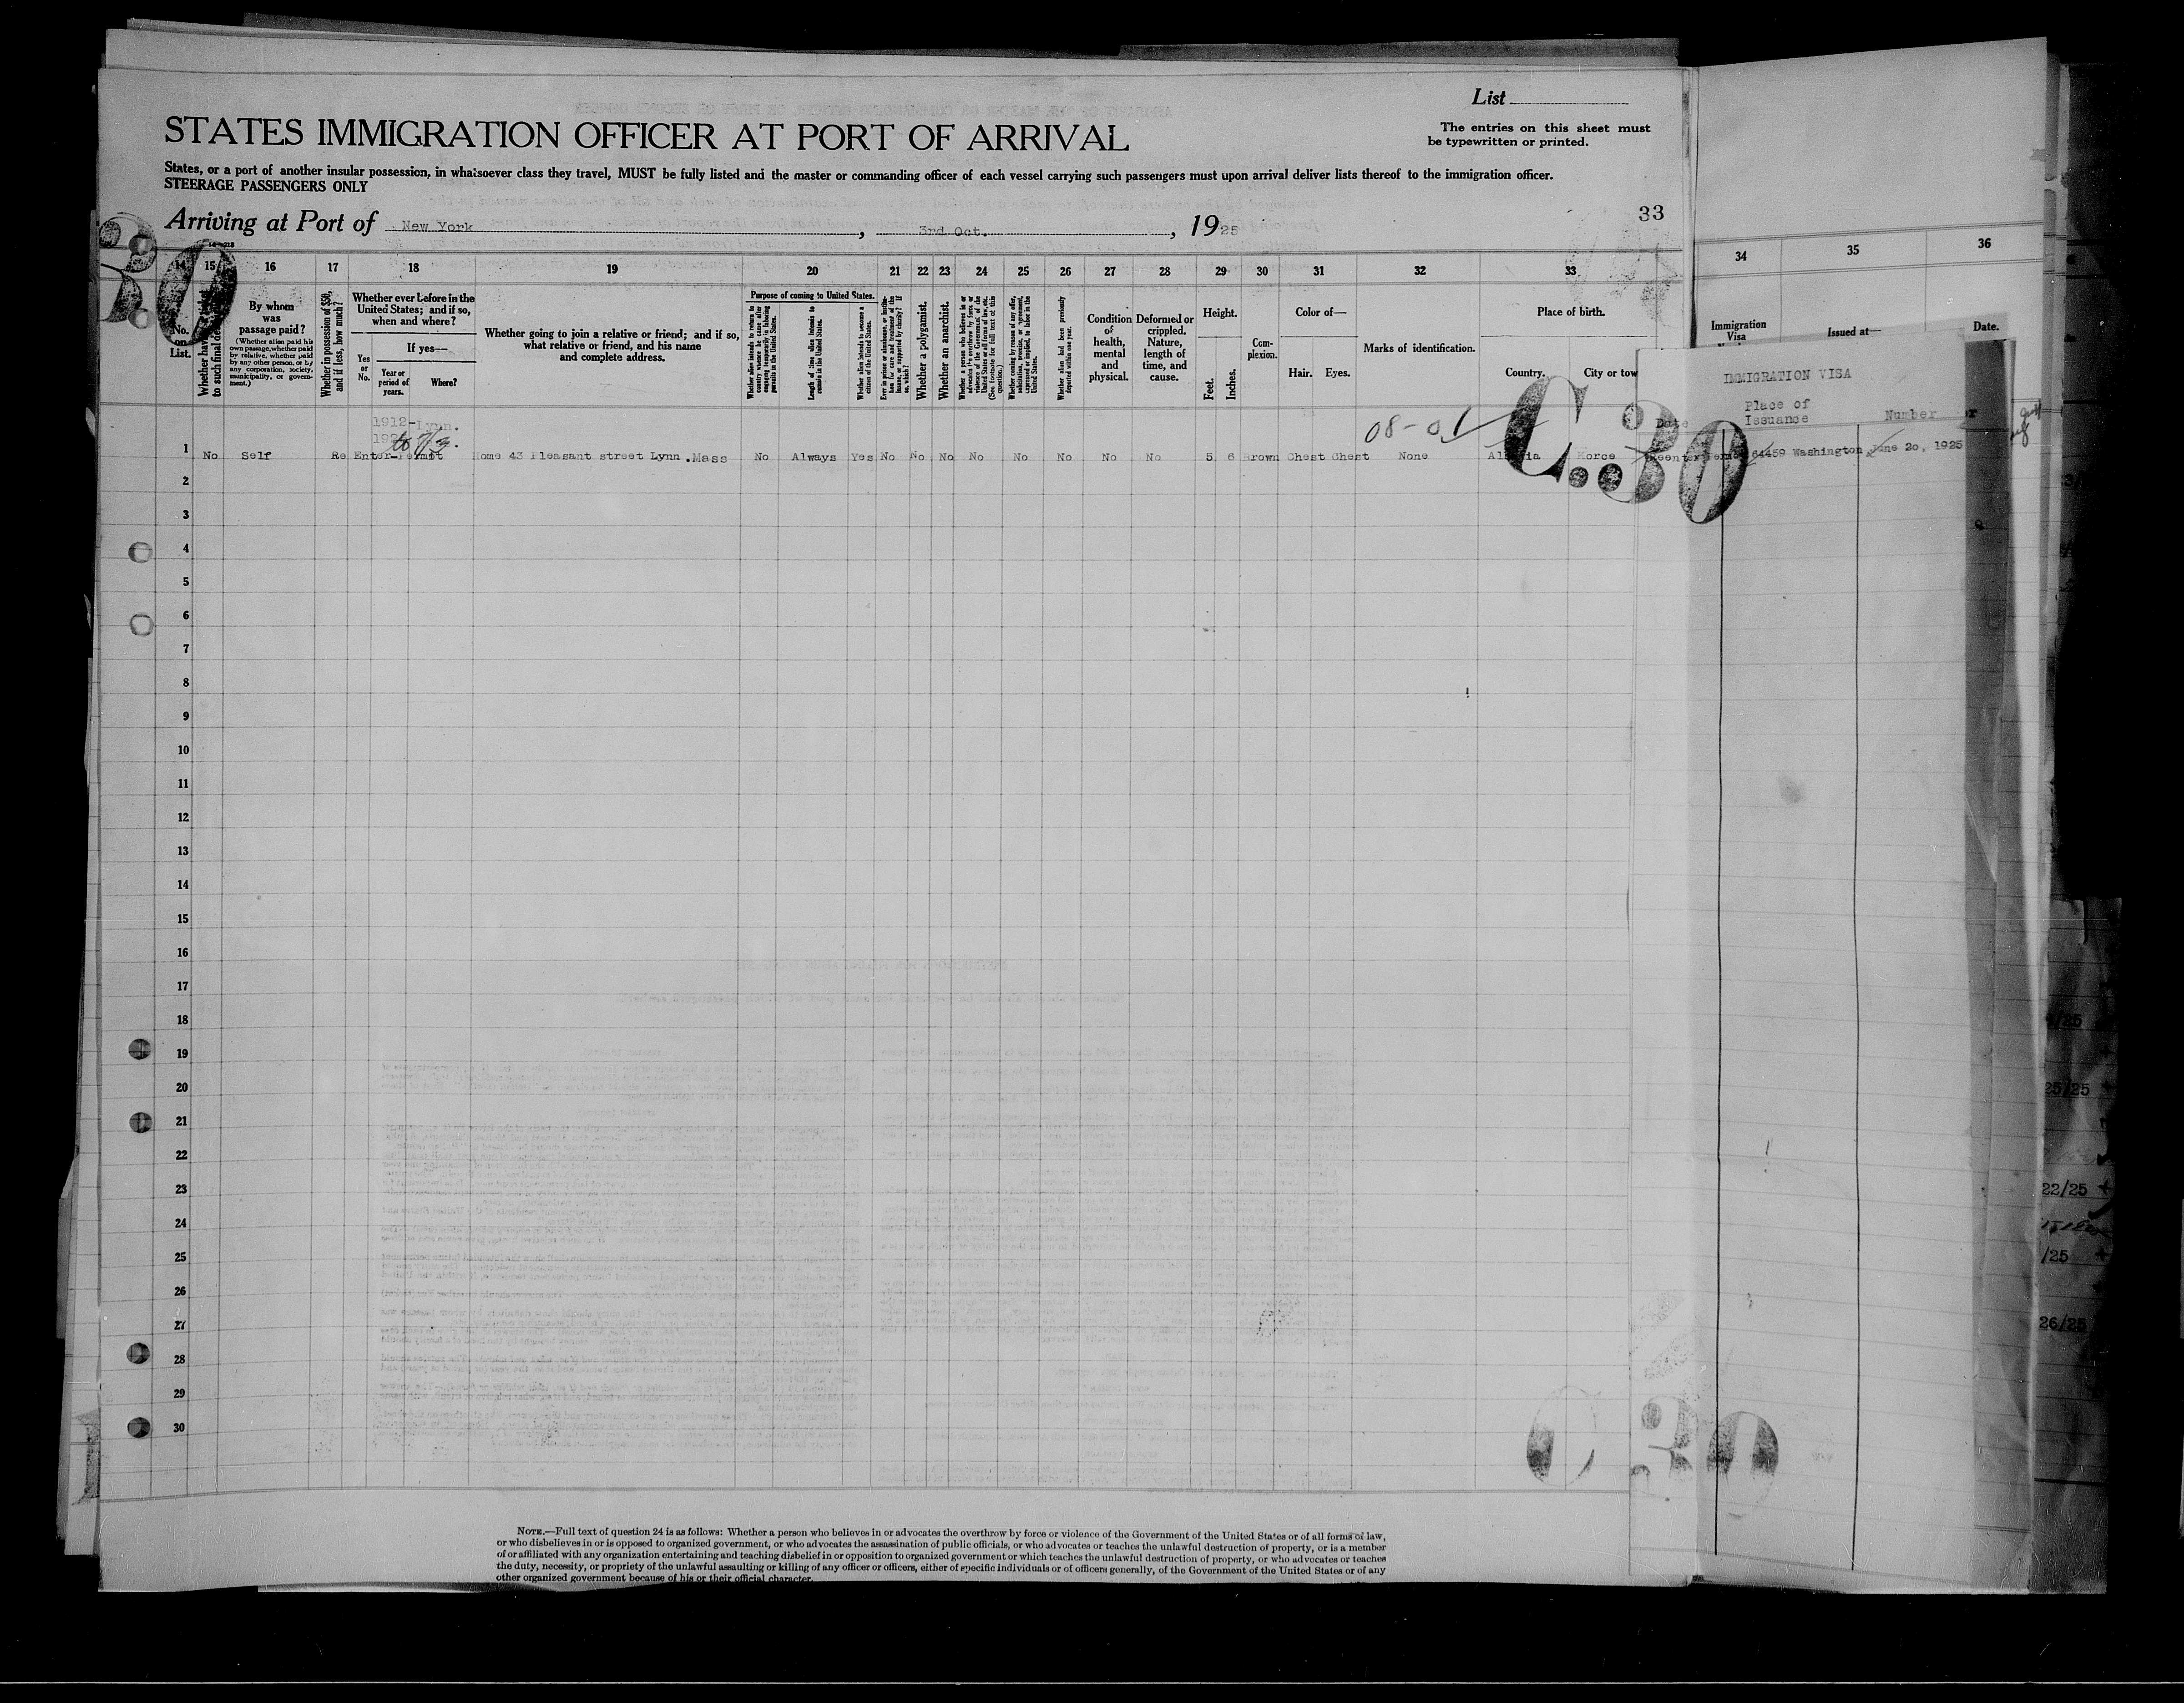 List
STATES IMMIGRATION OFFICER AT PORT OF ARRIVAL
The entries on this sheet must
be typewritten or printed.
States, or a port of another insular possession, in whatsoever class they travel, MUST be fully listed and the master or commanding officer of each vessel carrying such passengers must upon arrival deliver lists thereof to the immigration officer.
STEERAGE PASSENGERS ONLY
Arriving at Port of New York, 3rd Oct., 1925
33
15 16 17 18 19 20 21 22 23 24 25 26 27 28 29 30 31 32 33 34 35 36
No. on List.
By whom was passage paid?
(Whether alien paid his own passage, whether paid by relative, whether paid by any other person, or by any corporation, society, municipality, or government.)
Whether in possession of $50, and if less, how much?
Whether ever before in the United States; and if so, when and where?
Yes or No.
If yes—
Year or period of years.
Where?
Whether going to join a relative or friend; and if so, what relative or friend, and his name and complete address.
Purpose of coming to United States.
Whether alien intends to return to country whence he came after engaging temporarily in laboring pursuits in the United States.
Length of time alien intends to remain in the United States.
Whether alien intends to become a citizen of the United States.
Whether a polygamist.
Whether an anarchist.
Whether alien had been previously deported within one year.
Condition of health, mental and physical.
Deformed or crippled. Nature, length of time, and cause.
Height.
Feet. Inches.
Complexion.
Color of—
Hair. Eyes.
Marks of identification.
Place of birth.
Country. City or tow
Immigration Visa
Issued at—
Date.
IMMIGRATION VISA
Date
Place of Issuance
Number
1912- Lynn.
08-01
C.30
1 No Self Re Enter Permit Home 43 Pleasant street Lynn.Mass No Always Yes No No No No No No No No 5 6 Brown Chest Chest None Korce 64459 Washington June 20, 1925
2
3
4
5
6
7
8
9
10
11
12
13
14
15
16
17
18
19
20
21
22
23
24
25
26
27
28
29
30
25/25
22/25
/25
26/25
NOTE.—Full text of question 24 is as follows: Whether a person who believes in or advocates the overthrow by force or violence of the Government of the United States or of all forms of law,
or who disbelieves in or is opposed to organized government, or who advocates the assassination of public officials, or who advocates or teaches the unlawful destruction of property, or is a member
of or affiliated with any organization entertaining and teaching disbelief in or opposition to organized government or which teaches the unlawful destruction of property, or who advocates or teaches
the duty, necessity, or propriety of the unlawful assaulting or killing of any officer or officers, either of specific individuals or of officers generally, of the Government of the United States or of any
other organized government because of his or their official character.